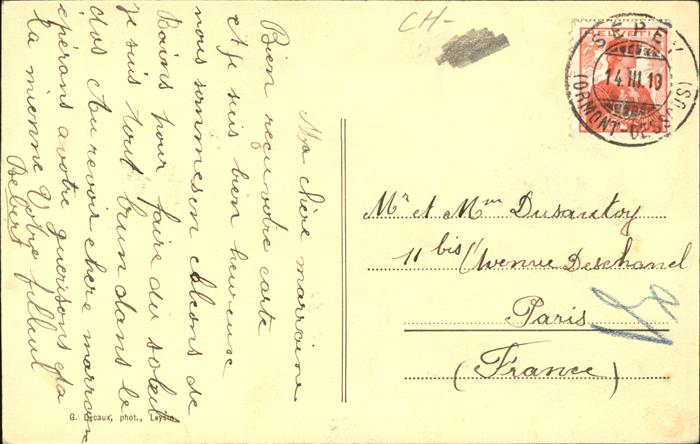 CH-
HELVETIA
SÉPEY
14 III 10
(ORMONT-DESSOUS)
Ma chère marraine
Bien reçu votre carte
et je suis bien heureuse
nous sommes en
Bains pour faire du soleil
je suis tout brun dans le
dos Au revoir chere marraine
epérons a votre guerisons
la mienne Votre filleul
Bebert
Mr et Mme Dusautoy
11 bis Avenue Deschanel
Paris
(France)
G. Decaux, phot., Leysin